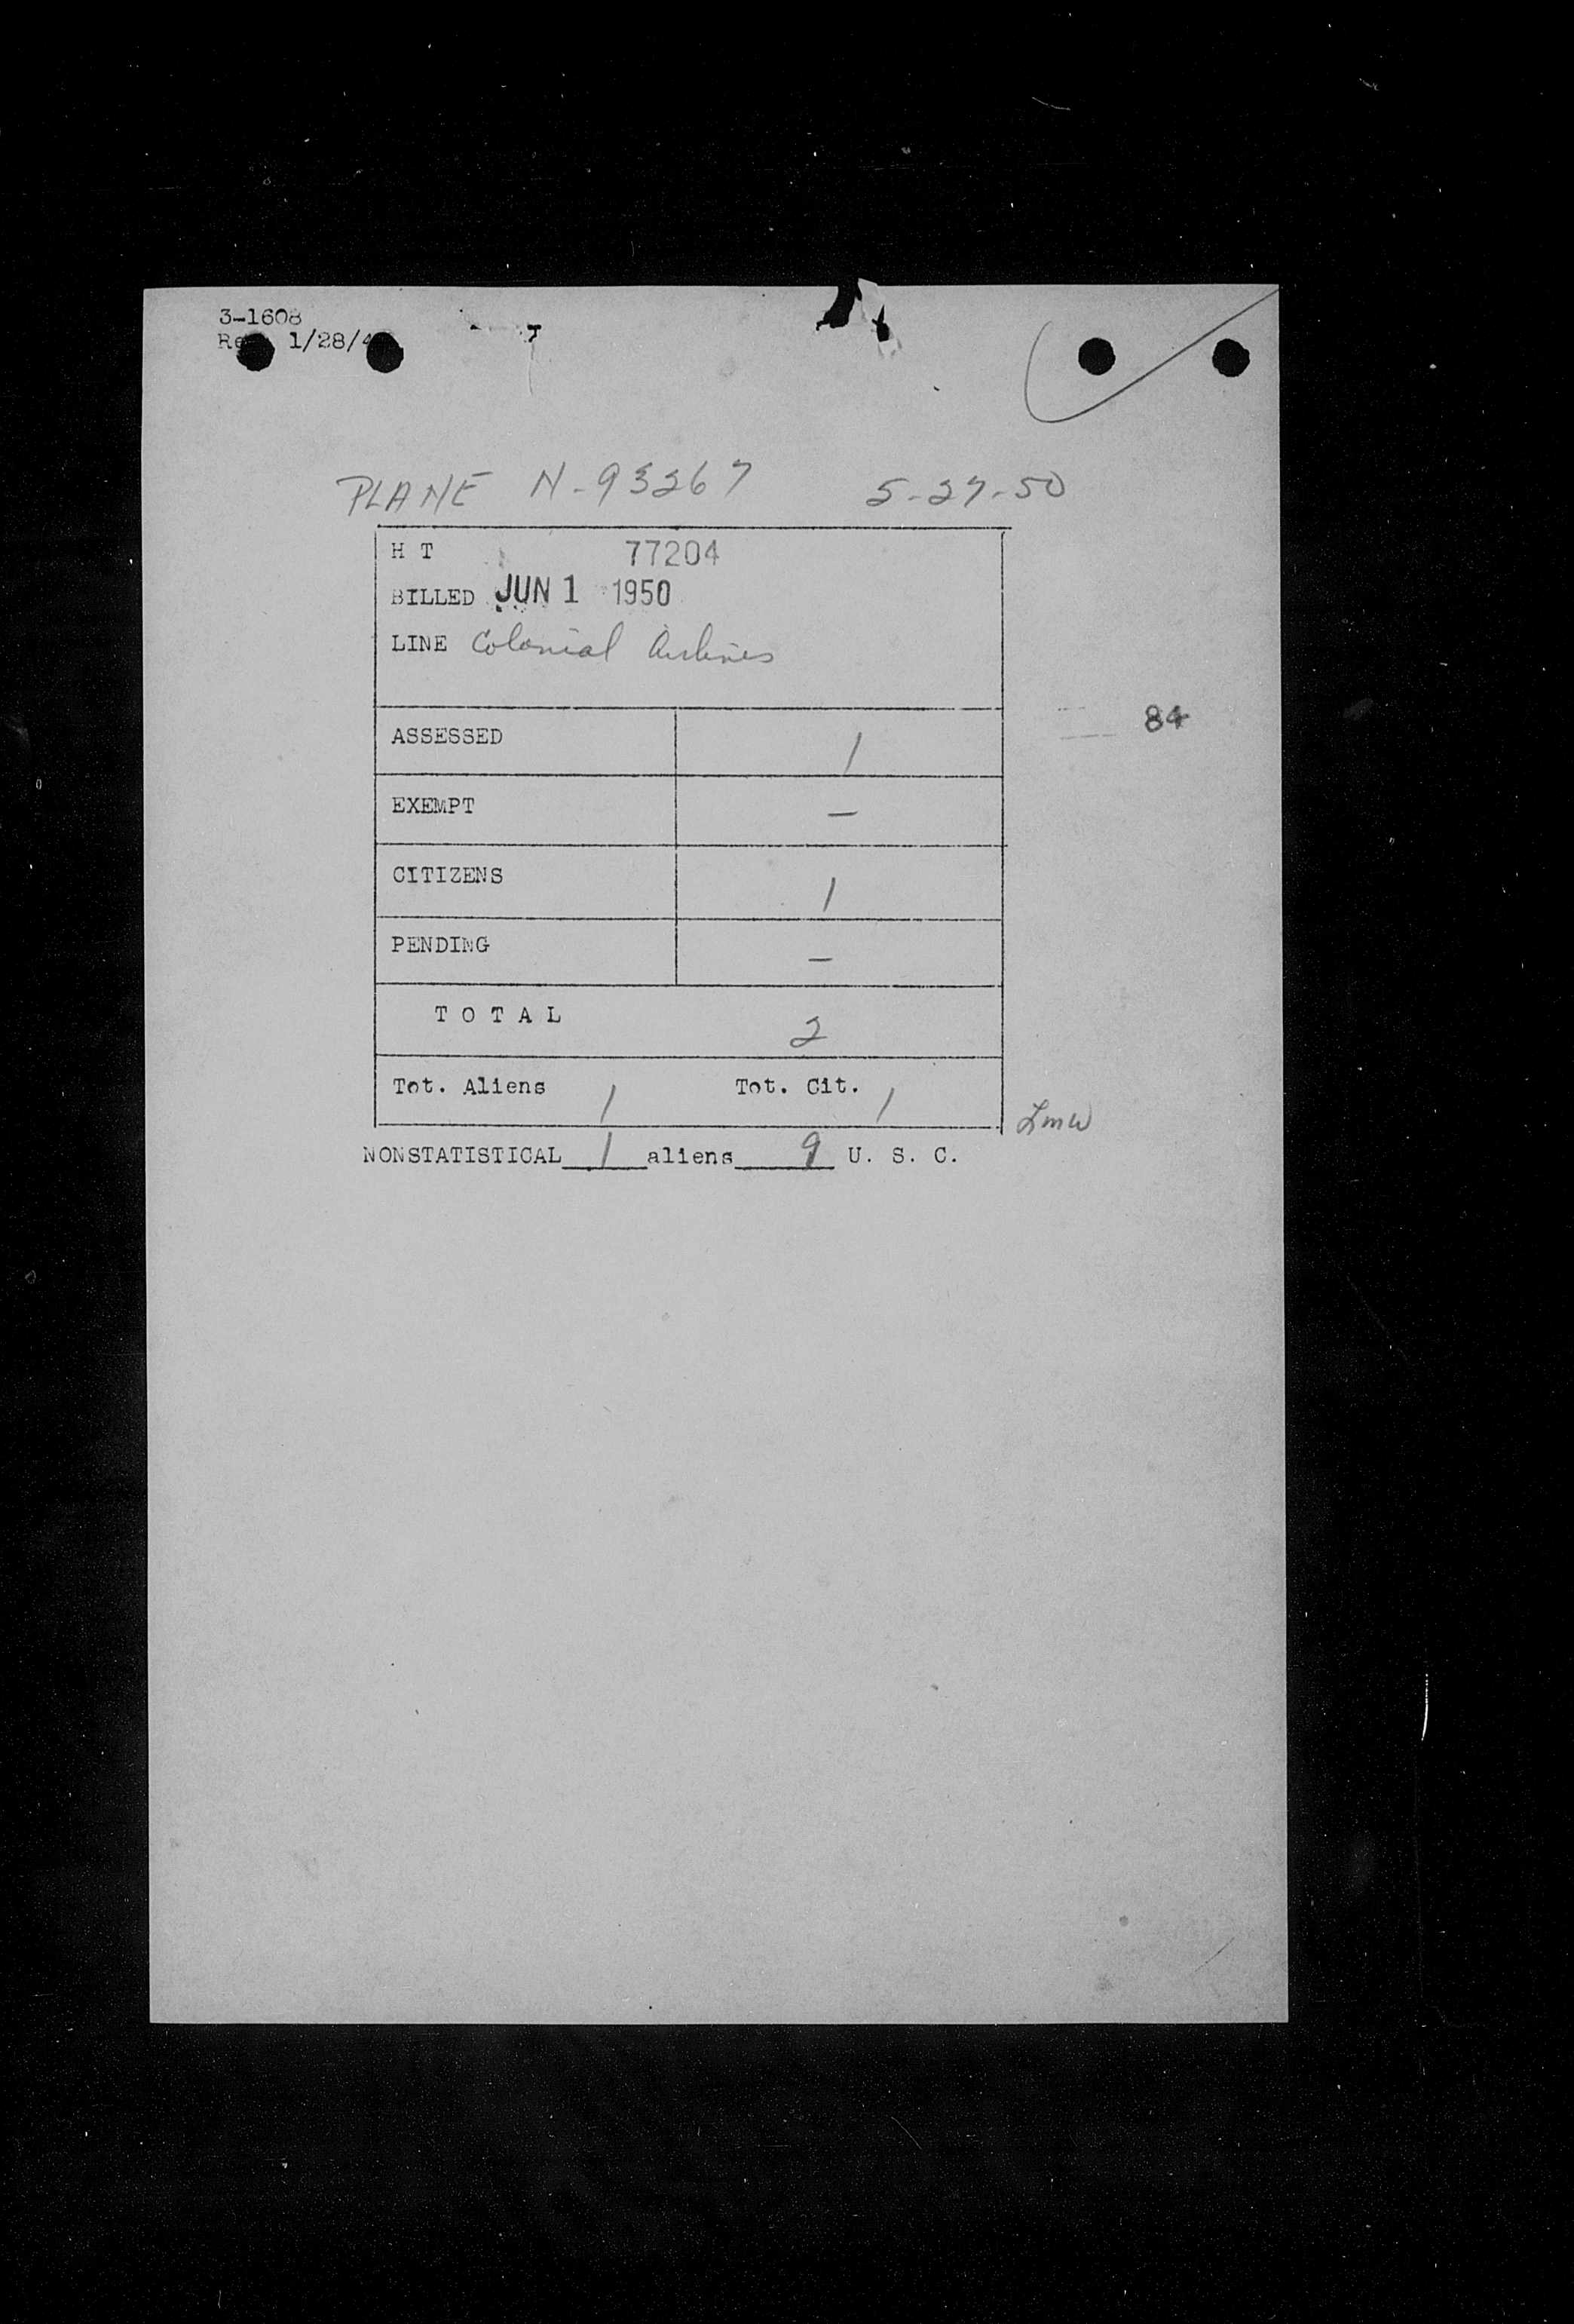 3-1608
1/28/4
PLANE N-93267 5-27-50
H T 77204
BILLED JUN 1 1950
LINE Colonial Airlines
84
ASSESSED 1
EXEMPT —
CITIZENS 1
PENDING —
T O T A L 2
Tot. Aliens 1 Tot. Cit. 1
Lmw
NONSTATISTICAL 1 aliens 9 U. S. C.